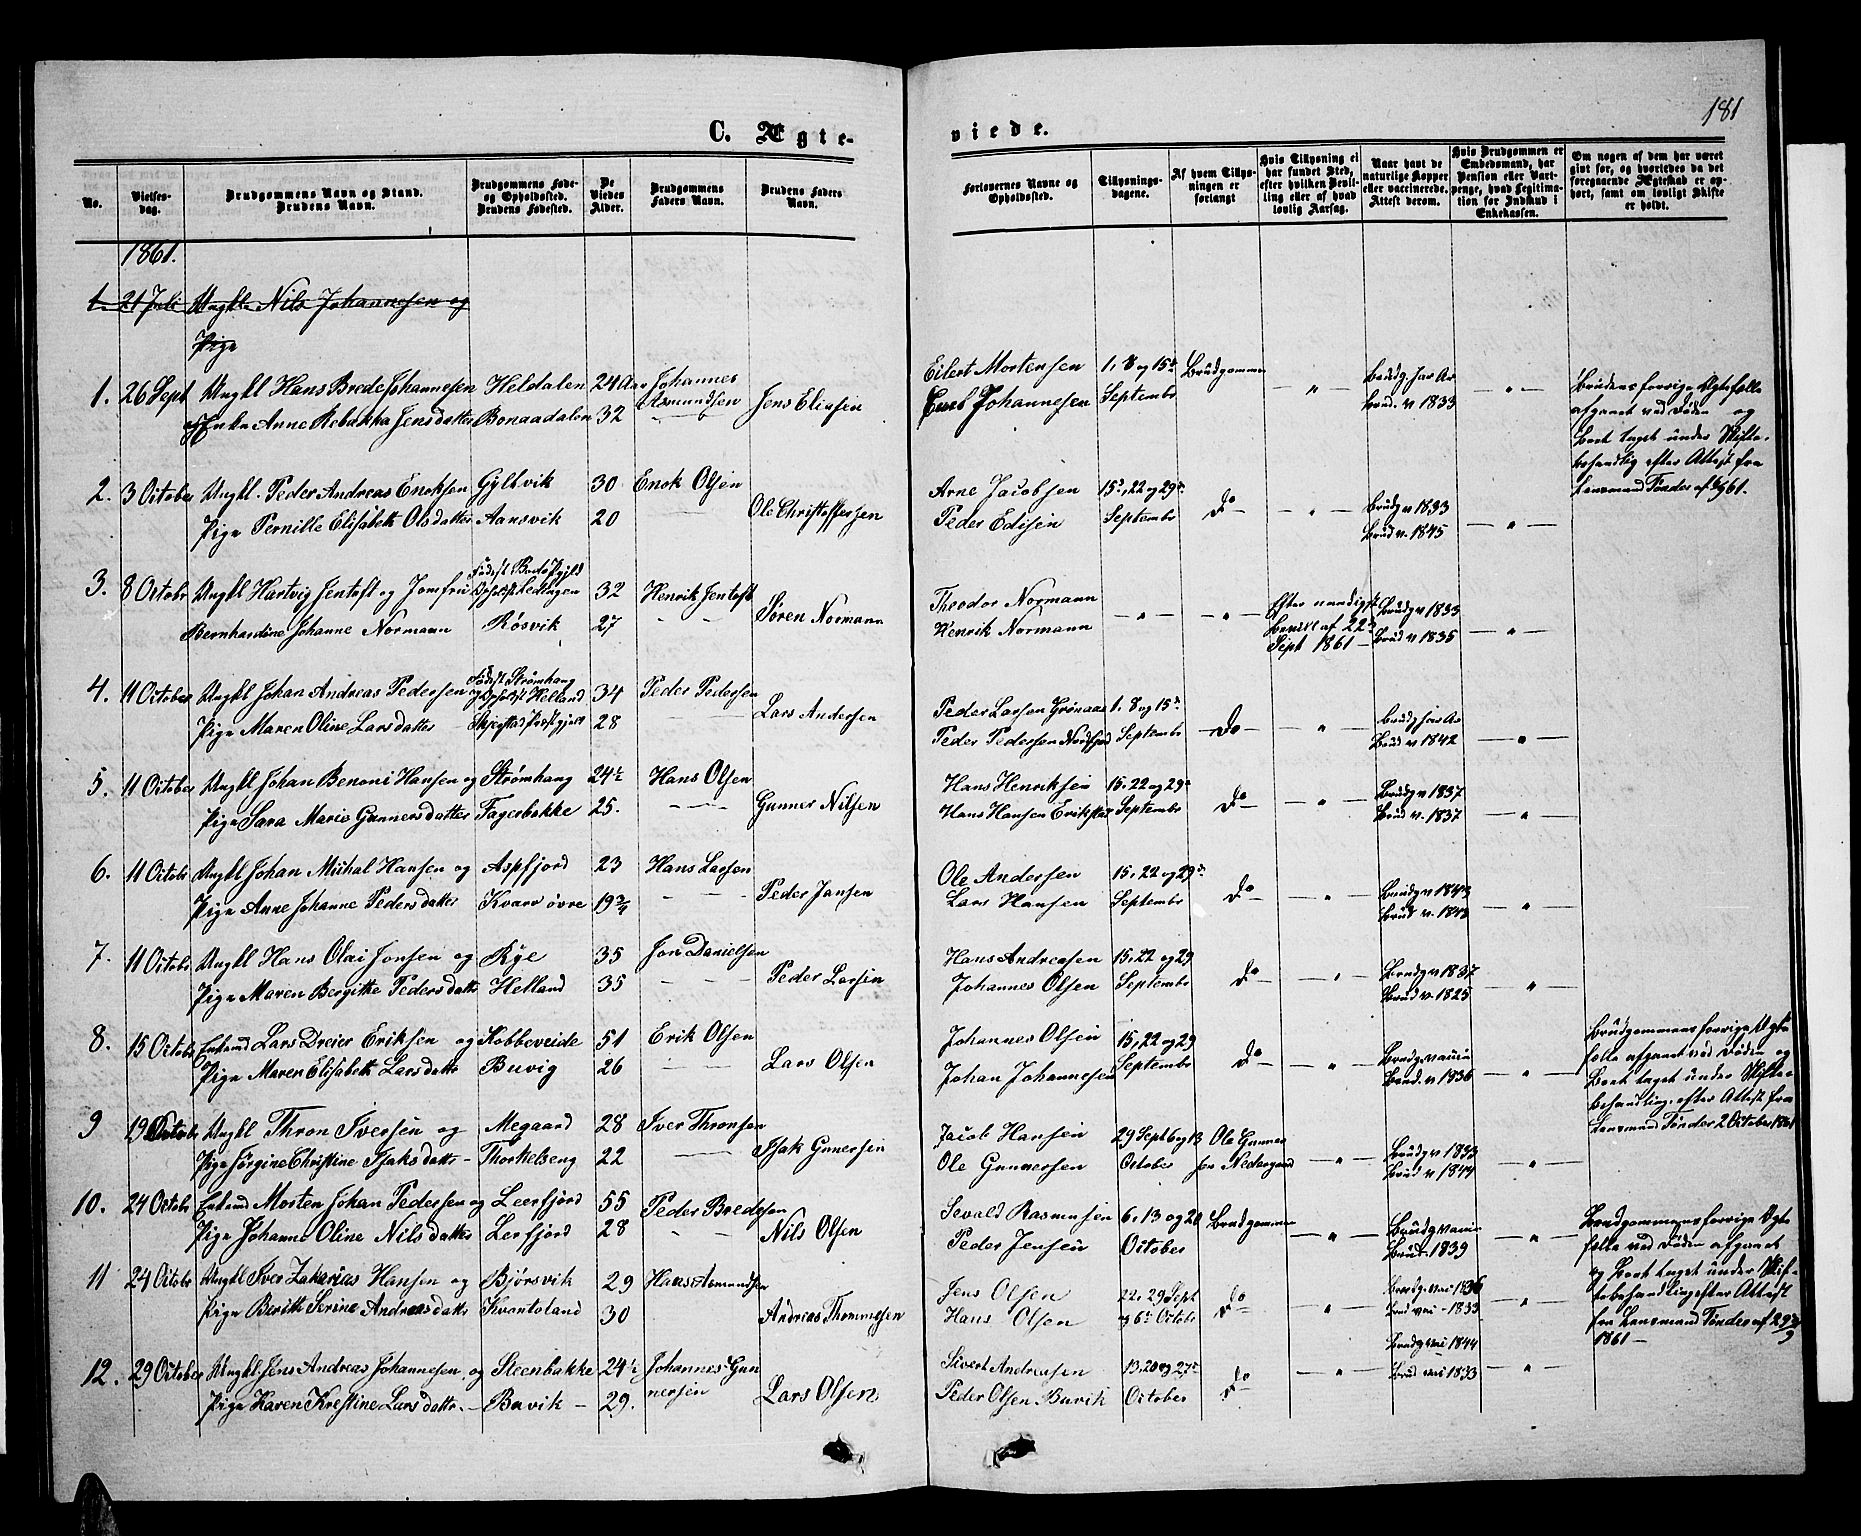 181
C. Ægte-
viede.
No.
Vielses-
dag.
Brudgommens Navn og Stand.
Brudens Navn.
Brudgommens Føde-
og Opholdssted.
Brudens Fødested.
De
Viedes
Alder.
Brudgommens
Faders Navn.
Brudens Faders
Navn.
Forlovernes Navne og
Opholdssted.
Tillysnings-
dagene.
Af hvem Tillys-
ningen er
forlangt
Hvis Tillysning ei
har fundet Sted,
efter hvilken Bevil-
ling eller af hvad
lovlig Aarsag.
Naar havt de
naturlige Kopper
eller vaccinerede.
Attest derom.
Hvis Brudgommen er
Embedsmand, har
Pension eller Vart-
penge, hvad Legitima-
tion for Indskud i
Enkekassen.
Om nogen af dem har været
givt før, og hvorledes da det
foregaaende Ægteskab er op-
hørt, samt om lovligt Skifte
er holdt.
1861.
1. 21 Juli Ungkl Nils Johannesen og
Pige
1. 26 Sept Ungkl Hans Brede Johannesen Heldalen 24 Aar Johannes Asmundsen Eilert Mortensen 1, 8 og 15de Brudgommen " Brudg. har Ar "
og Enke Anne Rebakka Jensdatter Bonaadalen 32 Jens Eliasen Johannesen September Brud. v 1833
Brudens forrige Ægtefælle
afgaaet ved Døden og
Boet taget under Skifte-
behandlig efter Attest fra
Lensmand Tønder af
2. 3 October Ungkl. Peder Andreas Enoksen Gyltvik 30 Enok Olsen Arne Jacobsen 15de, 22 og 29de Do " Brudg v 1833 "
Pige Pernille Elisabeth Olsdatter Aansvik 20 Ole Christoffersen Peder Edisen September Brud v. 1845
3. 8 Octobr Ungkl Hartvig Jentoft og Jomfru Fødest. Bodø Pgjeld 32 Henrik Jentoft Theodor Normann " " Efter naadigst Brudg v 1833
Bernhardine Johanne Normann Røsvik 27 Søren Normann Henrik Normann Bevill af 22de Brud v 1835 "
Sept 1861
4. 11 October Ungkl Johan Andreas Pedersen Fødest Strømhaug 34 Peder Pedersen Peder Larsen Grønaas 1. 8 og 15de Do " Brudg har Ar
og Opholdst Helland
Pige Maren Oline Larsdatter Skjerstad Præstgjeld 28 Lars Andersen Peder Pedersen Nordfjord September Brud v 1842 "
5. 11 October Ungkl Johan Benoni Hansen og Strømhaug 24½ Hans Olsen Hans Henriksen 15, 22 og 29de Do " Brudg v 1837
Pige Sara Marie Gunnersdatter Fagerbakke 25. Gunner Nilsen Hans Hansen September Brud v. 1837 "
6. 11 Octobr Ungkl Johan Michal Hansen og Aspfjord 23 Hans Larsen Ole Andersen 15, 22 og 29de Do " Brudg v 1843
Pige Anne Johanne Pedersdatter Kvarv øvre 19¾ Peder Jansen Lars Hansen September Brud v. "
7. 11 Octobr Ungkl Hans Olai Jonsen og Rye 35 Jon Danielsen Hans Andreasen 15, 22 og 29 Do " Brudg v 1837
Pige Maren Bergitte Pedersdattr Helland 35 Peder Larsen Johannes Olsen September Brud v. 1825 "
8. 15 Octobr Enkemd Lars Dreier Eriksen og Kobbeveide 51 Erik Olsen Johannes Olsen 15, 22 og 29 Do " Brudg
Pige Maren Elisabeth Larsdattr Buvig 26 Lars Olsen Johan Johannesen September Brud. v 1836 "
Brudgommens forrige Ægte
fælle afgaaet ved Døden og
Boet taget under Skifte-
behandling, efter Attest fra
Lensmand Tønder 2 October 1861
9 19 Octobr Ungkl Thron Iversen og Megaard 28 Iver Thronsen Jacob Hansen 29 Sept 6 og 13 Ole Gunner " Brudg v 1833
Pige Jørgine Christine Isaksdattr Thorkelseng 22 Isak Gunersen Ole Gunnersen October sen Nedergaard Brud v 1844 "
10. 24 Octobr Enkemd Morten Johan Pedersen og Leerfjord 55 Peder Bredesen Sevald Rasmusen 6, 13 og 20 Brudgommen " Brudg
Pige Johanne Oline Nilsdatter Lerfjord 28 Nils Olsen Peder Jensen October Brud. 1839 "
Brudgommens forrige Ægte
fælle ved Døden afgaaet
og Boet taget under Skif-
tebehandling efter Attest
fra Lensmand Tønder af 29/9
1861
11 24 Octobr Ungkl Iver Zakarias Hansen og Bjørsvik 29 Hans Asmundsen Jens Olsen 22, 29 Sept Do " Brudg vac 1836
Pige Berith Serine Andreasdattr Kvantoland 30 Andreas Thommesen Hans Olsen og 6te Octobr Brud vac 1833 "
12. 29 October Ungkl Jens Andreas Johannesen og Steenbakke 24½ Johannes Gun Sivert Andreasen 13, 20 og 27de Do " Brudg vac 1844
nersen
Pige Karen Krestine Larsdattr. Buvik 29. Lars Olsen Peder Olsen Buvik October Brud vac 1833 "